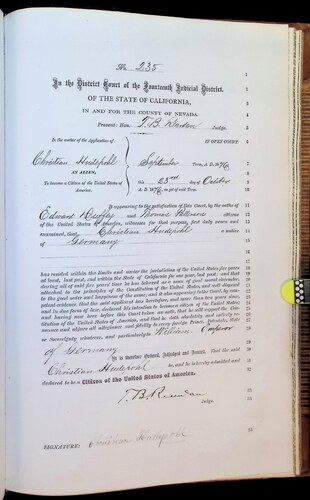 No. 235
In the District Court of the Fourteenth Judicial District,
OF THE STATE OF CALIFORNIA,
IN AND FOR THE COUNTY OF NEVADA.
Present: Hon. T. B. Reardan Judge.
In the matter of the Application of
IN OPEN COURT
Christian Hudepohl
September Term, A. D. 1876
AN ALIEN,
this 23rd day of October
To become a Citizen of the United States of America.
A. D. 1876, as yet of said Term.
It appearing to the satisfaction of this Court, by the oaths of
Edward and Thomas citizens
of the United States of America, witnesses for that purpose, first duly sworn and
examined, that Christian Hudepohl a native
of Germany
has resided within the limits and under the jurisdiction of the United States five years
at least, last past, and within the State of California for one year, last past; and that
during all of said five years' time he has behaved as a man of good moral character,
attached to the principles of the Constitution of the United States, and well disposed
to the good order and happiness of the same; and it also appearing to the Court, by com-
petent evidence, that the said applicant has heretofore, and more than two years since,
and in due form of law, declared his intention to become a citizen of the United States,
and having now here before this Court taken an oath, that he will support the Con-
stitution of the United States of America, and that he doth absolutely and entirely re-
nounce and abjure all allegiance and fidelity to every foreign Prince, Potentate, State
or Sovereignty whatever, and particularly to William Emperor
of Germany
It is therefore Ordered, Adjudged and Decreed, That the said
Christian Hudepohl be, and he is hereby admitted and
declared to be a Citizen of the United States of America.
T. B. Reardan
Judge.
SIGNATURE: Christian Hudepohl